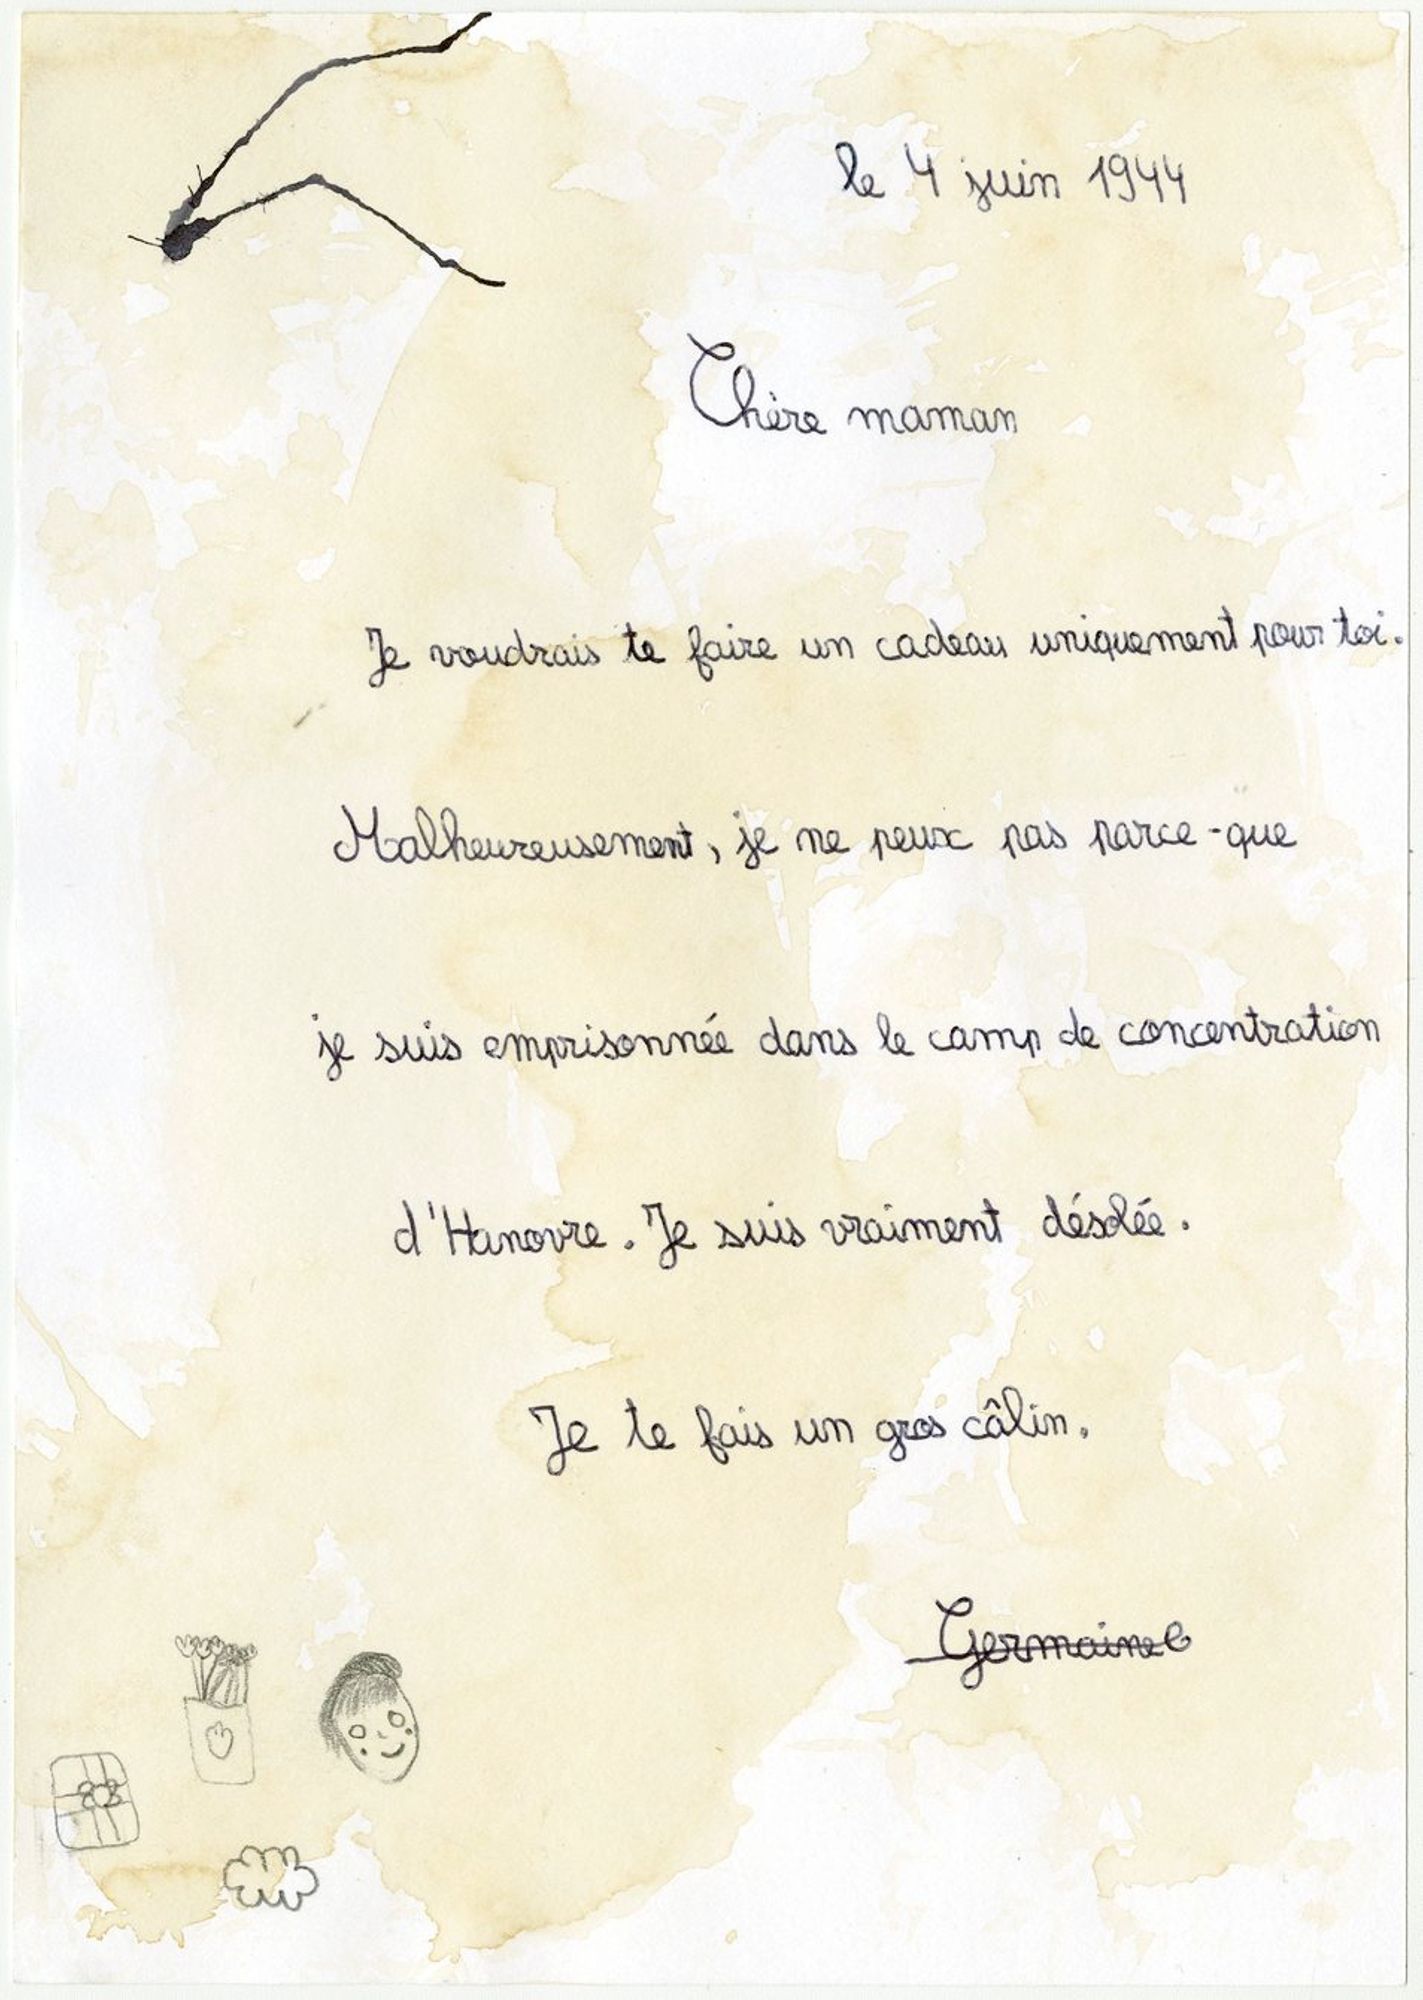 le 4 juin 1944
Chère maman
Je voudrais te faire un cadeau uniquement pour toi.
Malheureusement, je ne peux pas parce-que
je suis emprisonnée dans le camp de concentration
d'Hanovre. Je suis vraiment désolée.
Je te fais un gros câlin.
Germaine